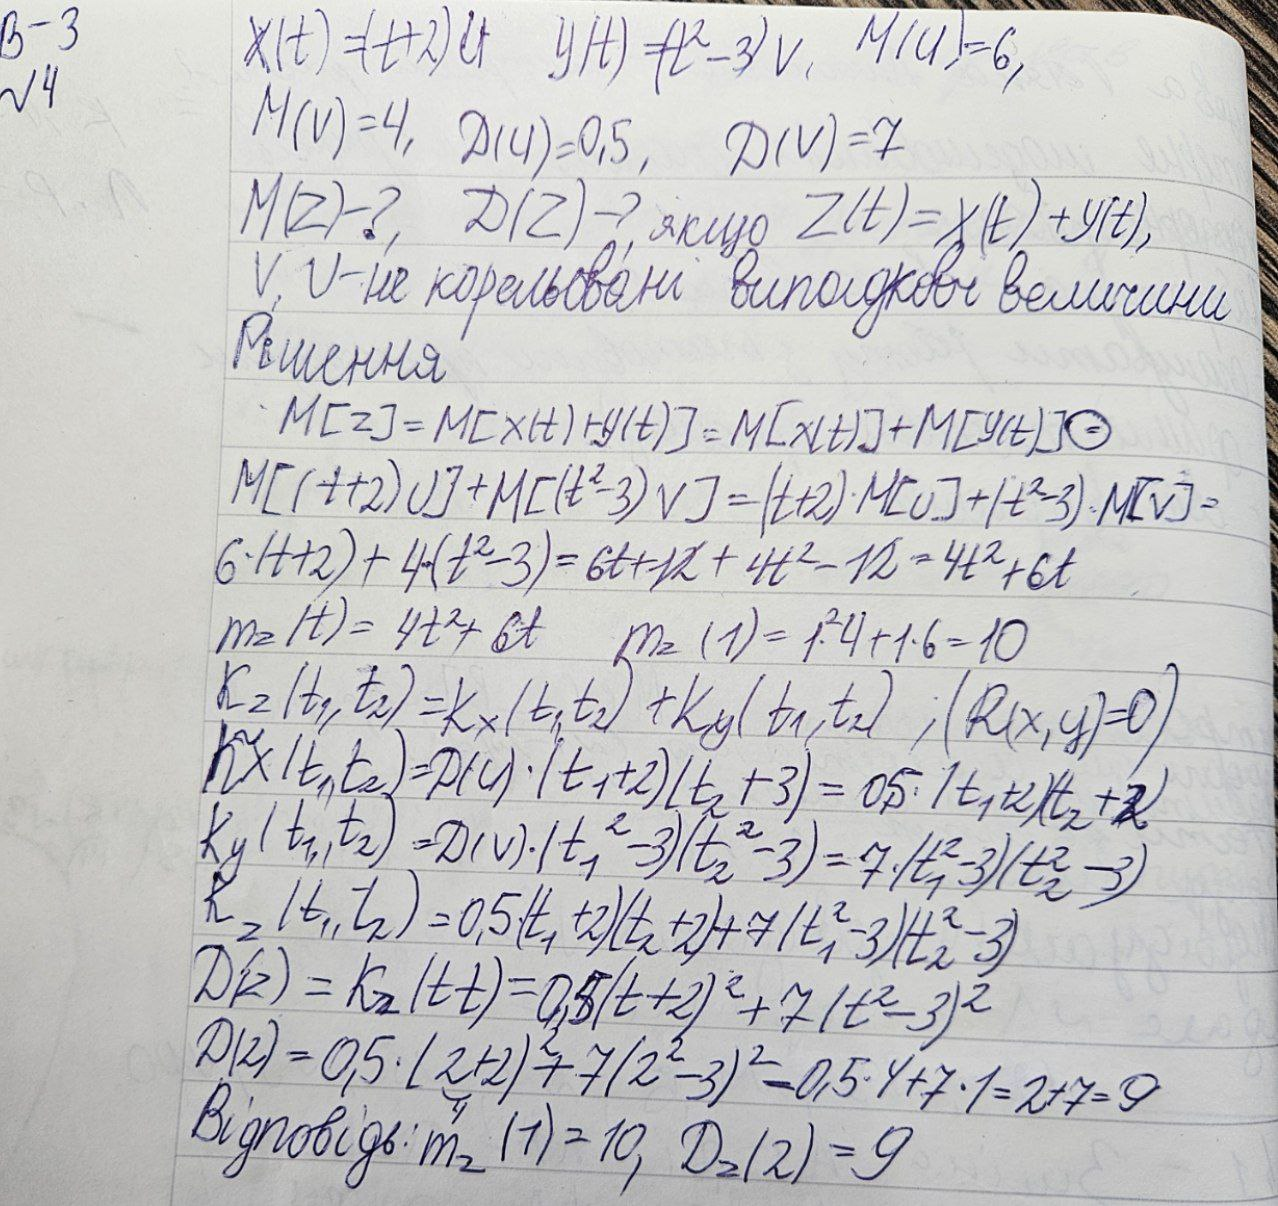 В-3
√4
X(t)=(t+2)U Y(t)=(t²-3)V, M(U)=6,
M(V)=4, D(U)=0,5, D(V)=7
M(Z)-?, D(Z)-?, якщо Z(t)=X(t)+Y(t),
V, U-не корельовані випадкові величини
Рішення
M[Z]=M[X(t)+Y(t)]=M[X(t)]+M[Y(t)]=
M[(t+2)U]+M[(t²-3)V]=(t+2)·M[U]+(t²-3)·M[V]=
6·(t+2)+4·(t²-3)=6t+12+4t²-12=4t²+6t
mz(t)=4t²+6t mz(1)=1²·4+1·6=10
Kz(t₁,t₂)=Kx(t₁,t₂)+Ky(t₁,t₂) ; (R(x,y)=0)
Kx(t₁,t₂)=D(U)·(t₁+2)(t₂+3)=0,5·(t₁+2)(t₂+2)
Ky(t₁,t₂)=D(V)·(t₁²-3)(t₂²-3)=7·(t₁²-3)(t₂²-3)
Kz(t₁,t₂)=0,5(t₁+2)(t₂+2)+7(t₁²-3)(t₂²-3)
D(z)=Kz(tt)=0,5(t+2)²+7(t²-3)²
D(2)=0,5·(2+2)²+7(2²-3)²=0,5·4+7·1=2+7=9
4
Відповідь: mz(1)=10, Dz(2)=9